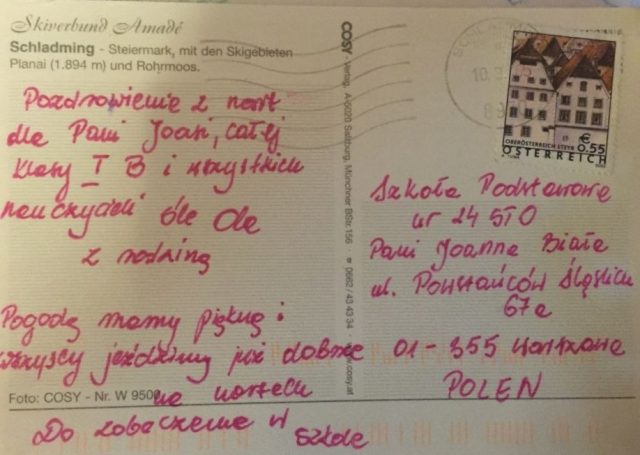 Skiverbund Amadé
Schladming - Steiermark, mit den Skigebieten
Planai (1.894 m) und Rohrmoos.
Pozdrowienia z nart
dla Pani Joasi, całej
klasy I B i wszystkich
nauczycieli śle Ola
z rodziną
Pogodę mamy piękną i
wszyscy jeździmy już dobrze
na nartach
Do zobaczenia w
szkole
Foto: COSY - Nr. W 9500
COSY - Verlag, A-5020 Salzburg, Münchner BStr. 156 · ☎ 0662/43 43 34 ·
cosy.at
€ 0,55
OBERÖSTERREICH STEYR
ÖSTERREICH
Szkoła Podstawowa
nr 24 STO
Pani Joanna Biała
ul. Powstańców Śląskich
67a
01-355 Warszawa
POLEN